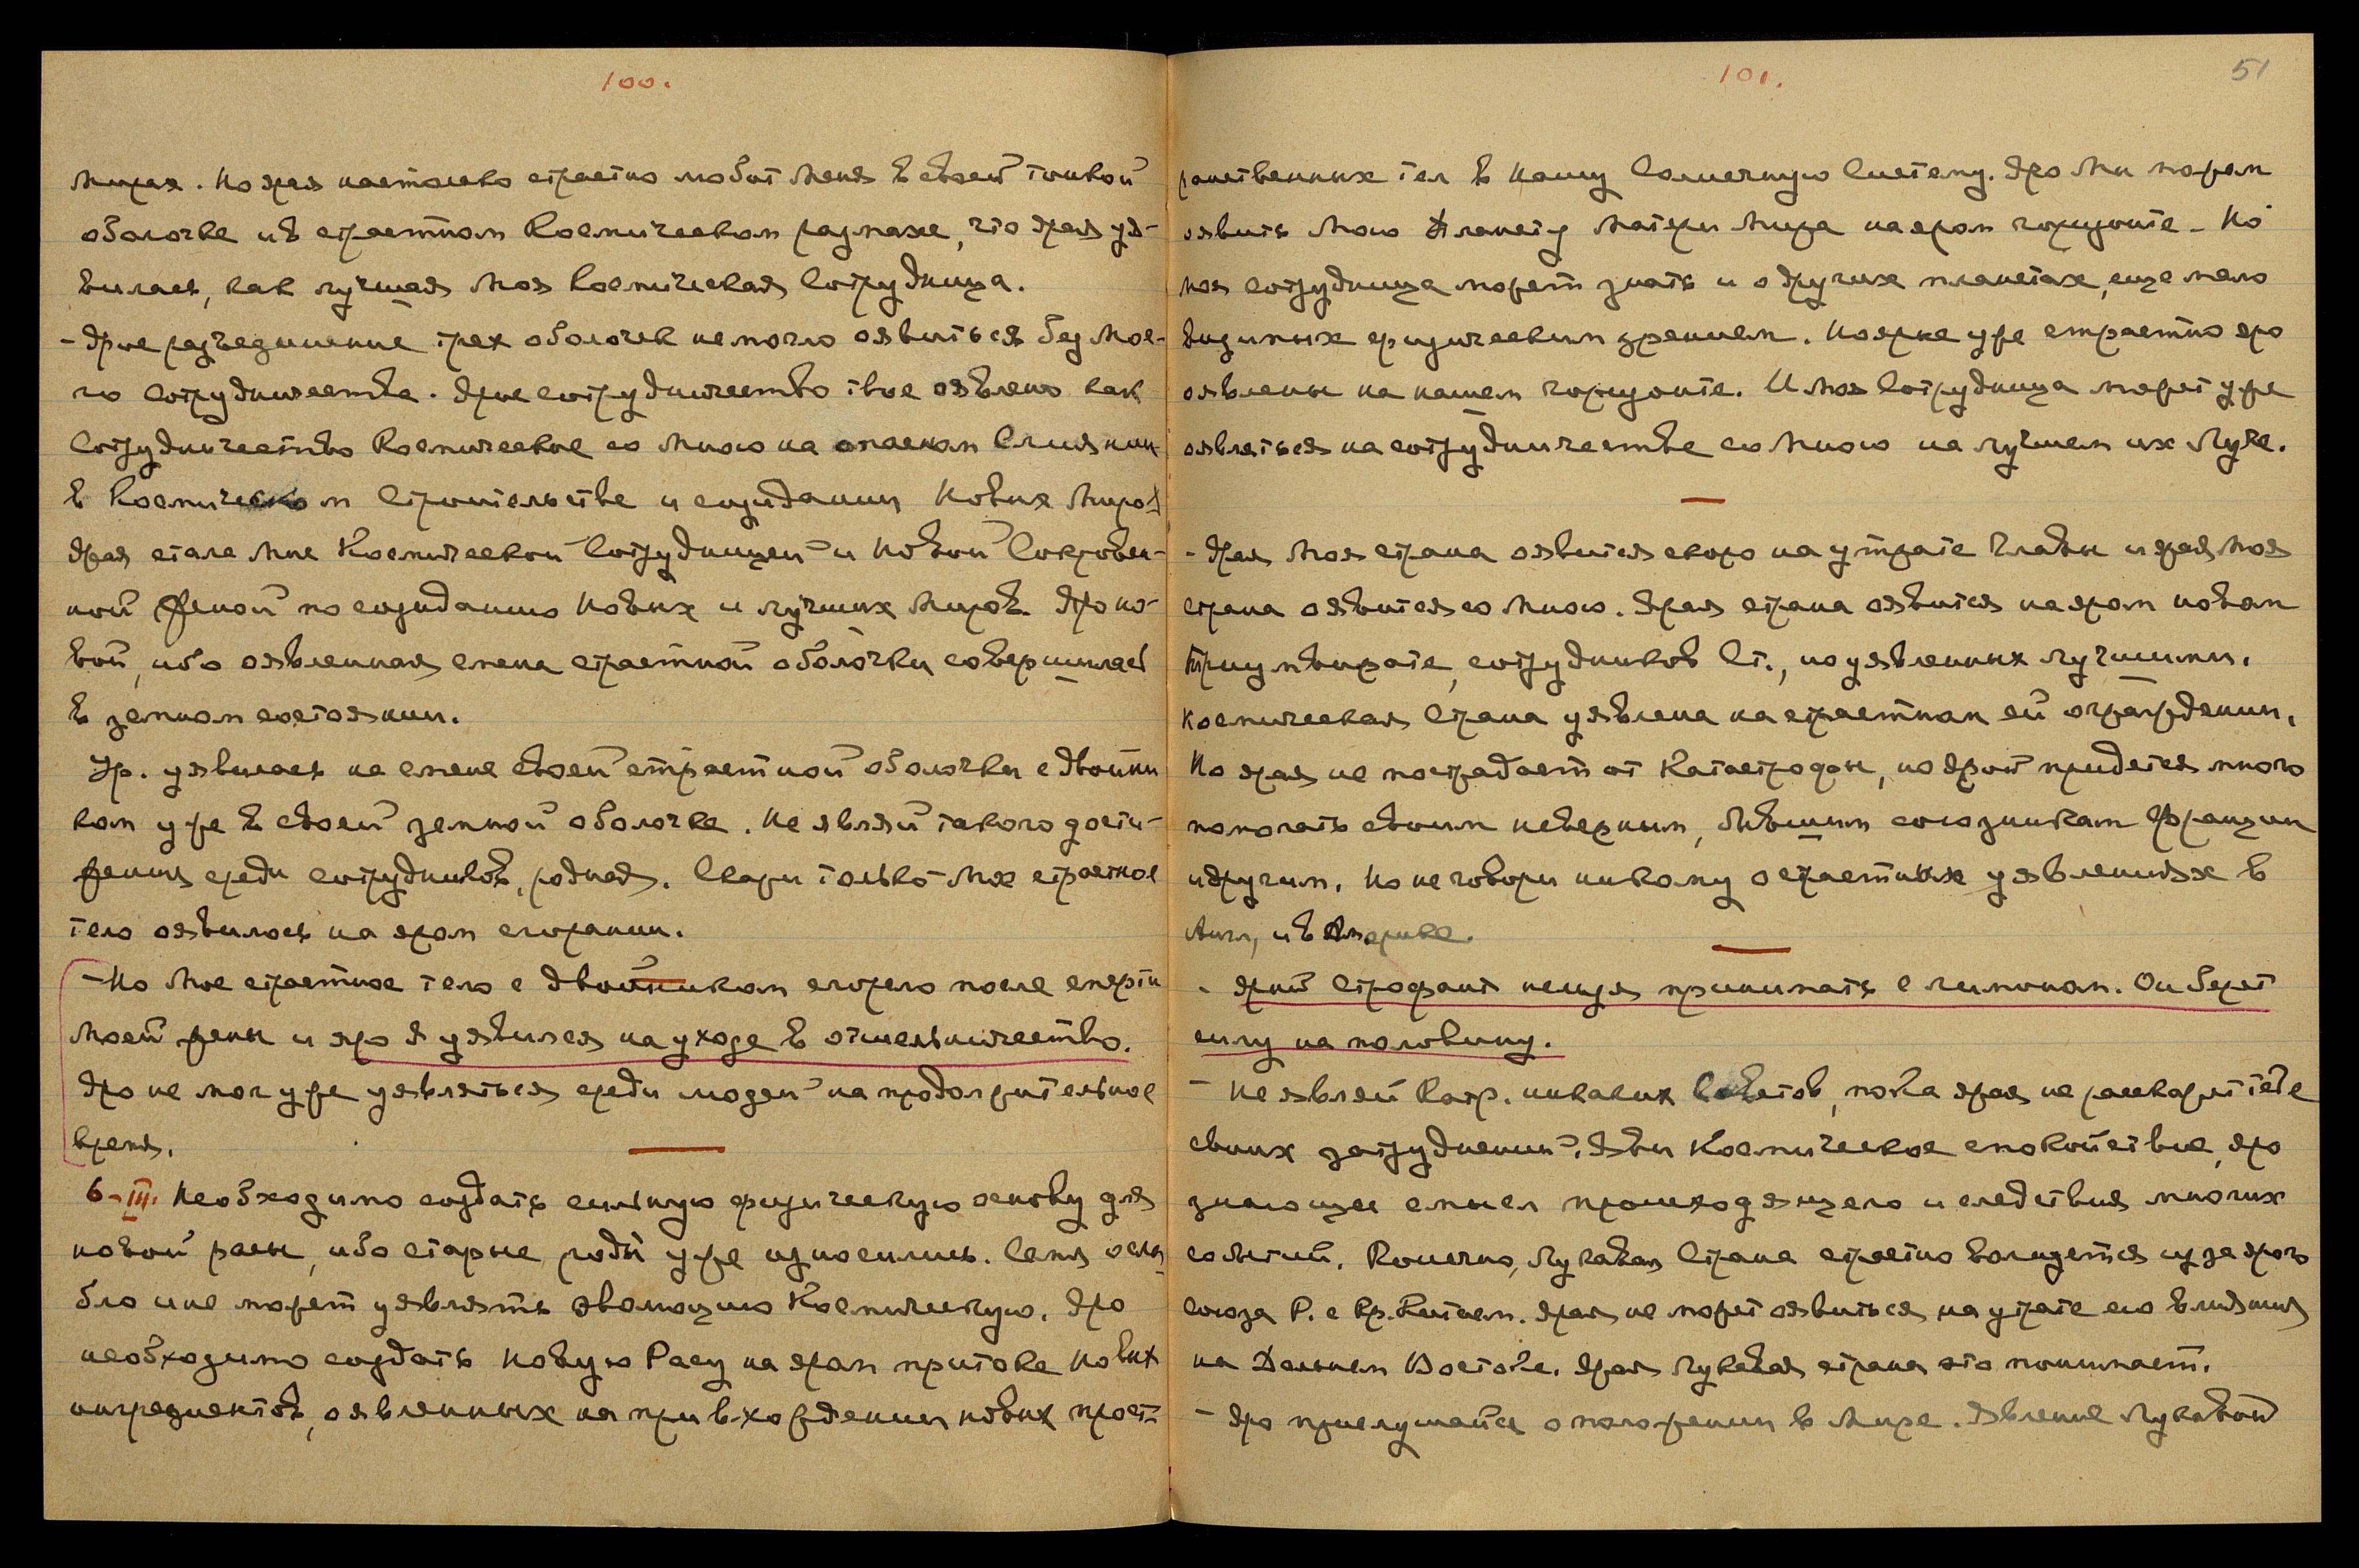 100.
Мирах. Но ярая настолько страстно любит Меня в своей тонкой
оболочке и в страстном Космическом размахе, что ярая уя-
вилась, как лучшая Моя Космическая Сотрудница.
- Ярое разъединение трех оболочек не могло оявиться без Мое-
го Сотрудничества. Ярое сотрудничество твое оявлено как
Сотрудничество Космическое со Мною на опасном Слиянии
в Космическом Строительстве и созидании Новых Миров
Ярая стала Мне Космической Сотрудницей и Новой Сокровен-
ной Женой по созиданию Новых и лучших Миров. Яро но-
вой, ибо оявленная смена страстной оболочки совершилась
в земном состоянии.
Ур. уявилась на смене своей страстной оболочки с двойни
ком уже в своей земной оболочке. Не являй такого дости-
жения среди сотрудников, родная. Скажи только - Мое страстное
тело оявилось на яром сгорании.
- Но Мое страстное тело с двойником сгорело после смерти
Моей жены и яро Я уявился на уходе в отшельничество.
Яро не мог уже уявляться среди людей на продолжительное
время.
6-III. Необходимо создать сильную физическую основу для
новой расы, ибо старые роды уже износились. Семя осла
бло и не может уявлять эволюцию Космическую. Яро
необходимо создать Новую Расу на яром притоке Новых
ингредиентов, оявленных на привхождении новых прост-
101.
51
ранственных тел в нашу Солнечную Систему. Яро Мы можем
оявить Мою Планету Матери Мира на яром горизонте. Но
моя сотрудница может знать и о других планетах, еще мало
видимых физическим зрением. Но ярые уже страстно яро
оявлены на нашем горизонте. И Моя Сотрудница может уже
оявляться на сотрудничестве со Мною на лучшем их Луче.
- Ярая Моя страна оявится скоро на утрате Главы и ярая Моя
страна оявится со Мною. Ярая страна оявится на яром новом
Триумвирате, сотрудников Ст., но уявленных лучшими.
Космическая Страна уявлена на страстном ей ограждении.
Но ярая не пострадает от Катастрофы, но ярой придется много
помогать своим неверным, бывшим союзникам Франции
и другим. Но не говори никому о страстных уявлениях в
Англ, и в Америке.
- Ярый Строфант нельзя принимать с лимоном. Он берет
силу на половину.
- Не являй Катр. никаких Советов, пока ярая не расскажет тебе
своих затруднений. Яви Космическое спокойствие, яро
знающее смысл происходящего и следствия многих
событий. Конечно, Лукавая Страна страстно волнуется из за ярого
союза Р. с Кр. Китаем. Ярая не может оявиться на утрате его влияния
на Дальнем Востоке. Ярая Лукавая страна это понимает.
- Яро прислушайся о положении в Мире. Явление Лукавой